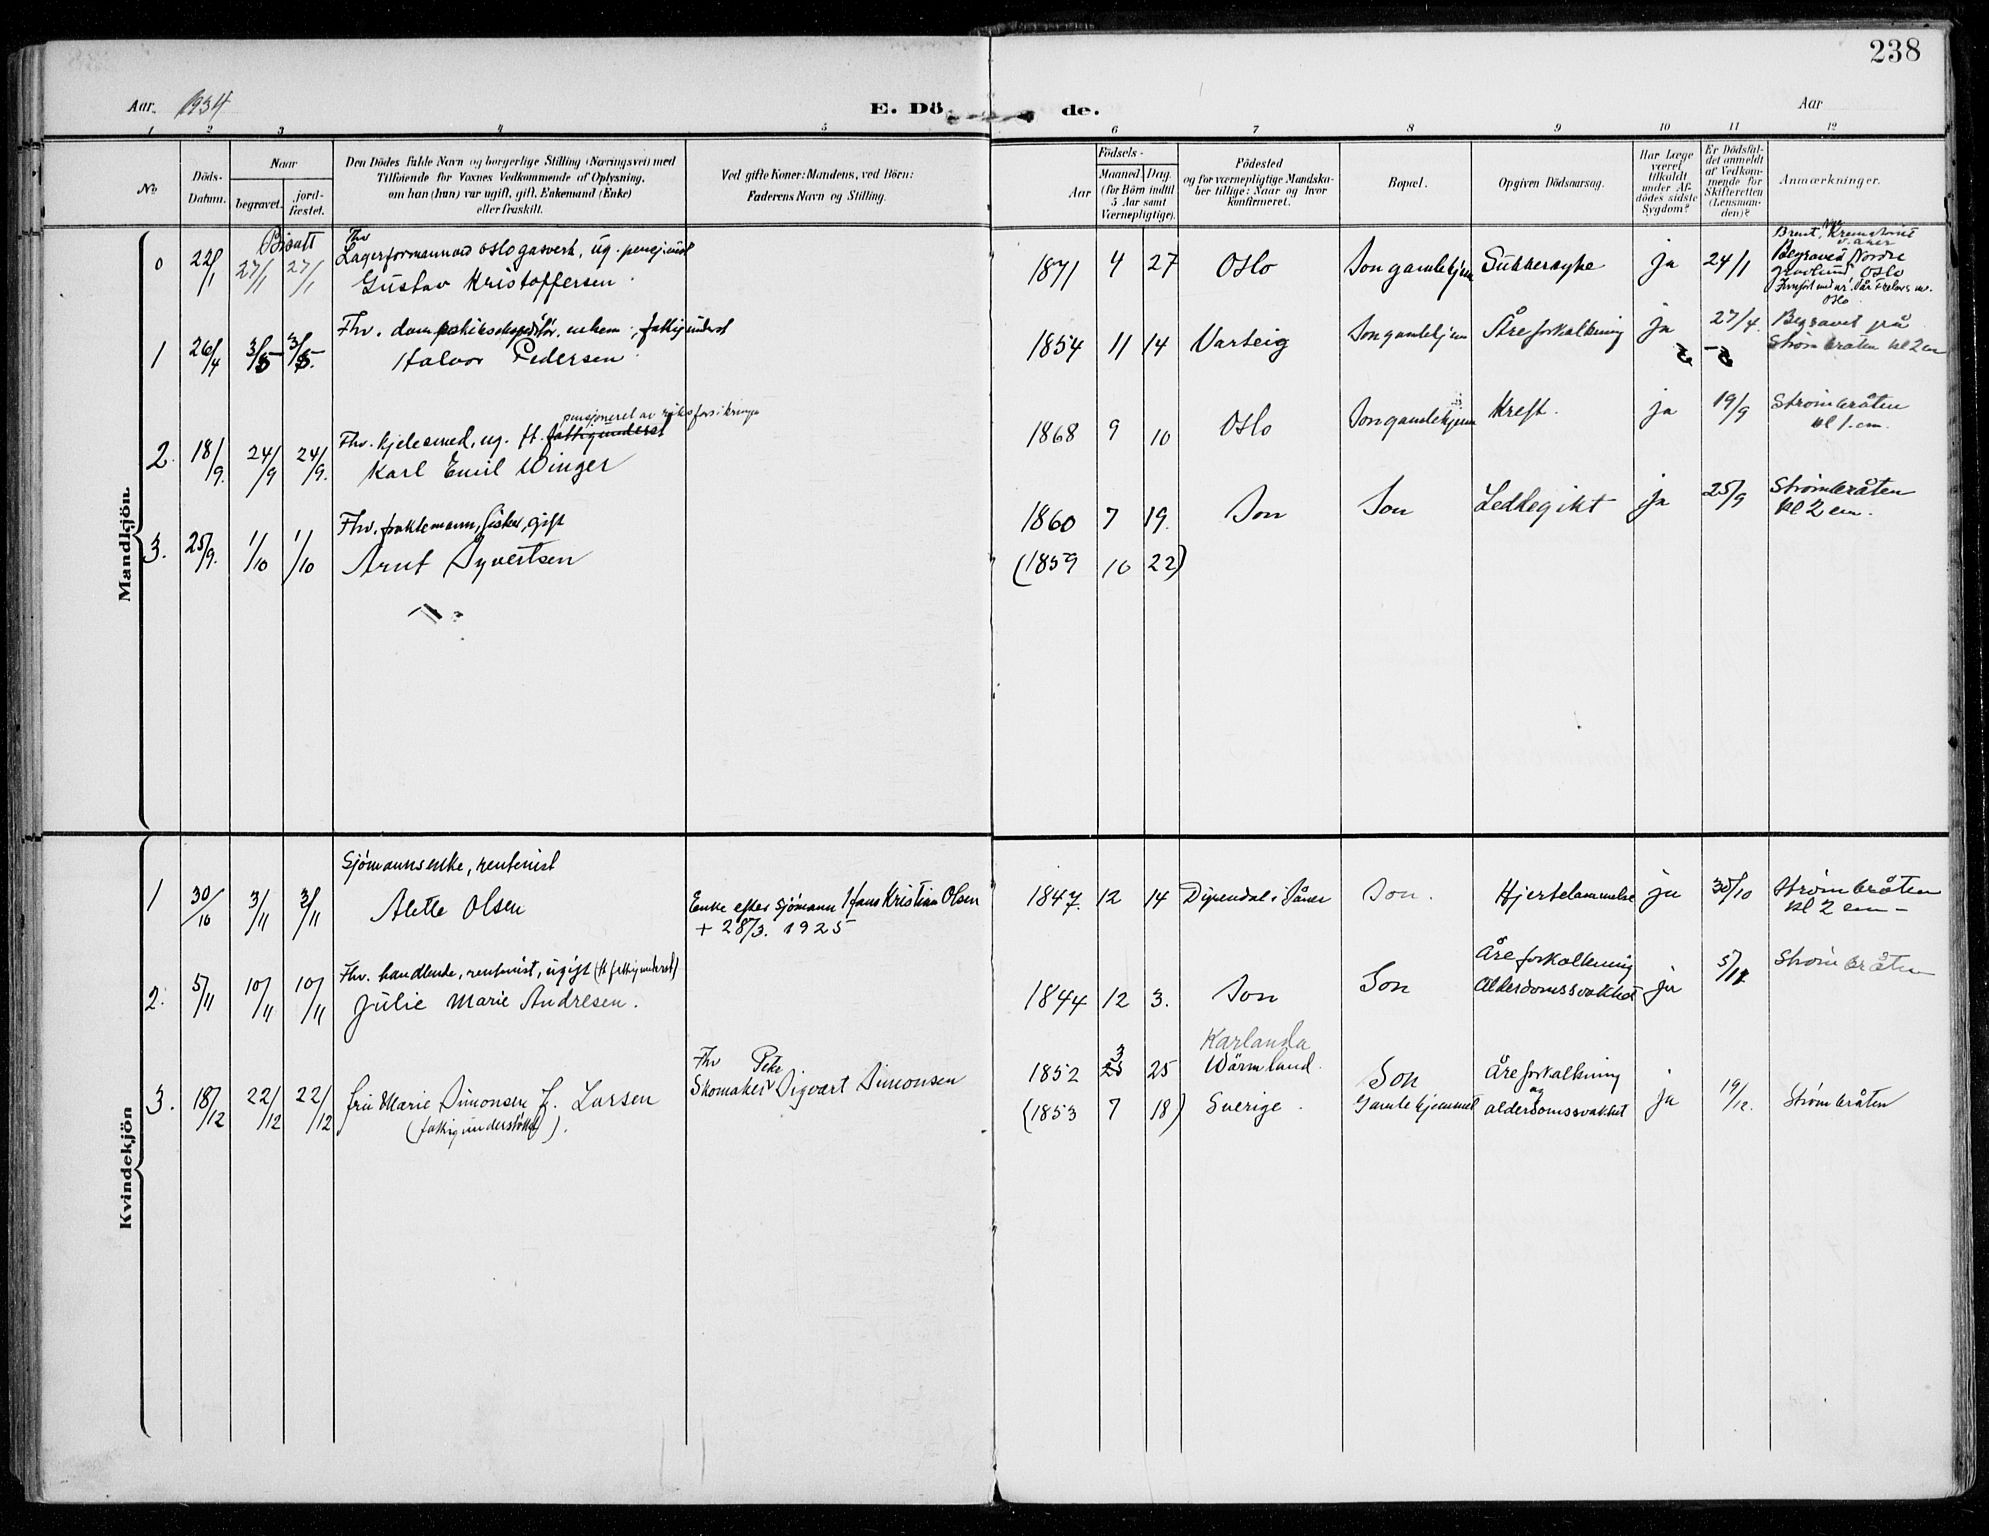 238
Aar. 1934
E. Dö
de.
Aar
1 2 3 4 5 6 7 8 9 10 11 12
No
Döds-
Datum.
Naar
begravet.
jord-
fæstet.
Den Dödes fulde Navn og borgerlige Stilling (Næringsvei) med
Tilföiende for Voxnes Vedkommende af Oplysning,
om han (hun) var ugift, gift, Enkemand (Enke)
eller fraskilt.
Ved gifte Koner: Mandens, ved Börn:
Faderens Navn og Stilling.
Födsels-
Aar
Maaned Dag.
(for Börn indtil
5 Aar samt
Værnepligtige).
Födested
og for værnepligtige Mandska-
ber tillige: Naar og hvor
konfirmeret.
Bopæl.
Opgiven Dödsaarsag.
Har Læge
været
tilkaldt
under Af-
dödes sidste
Sygdom?
Er Dödsfal-
det anmeldt
af Vedkom-
mende for
Skifteretten
(Lensman-
den)?
Anmærkninger.
Mandkjön.
Bisatt
0 22/1 27/1 27/1
Fhv
Lagerformann ved Oslo gasverk, ug.
Gustav Kristoffersen.
1871 4 27 Oslo Son gamlehjem Sukkersyke ja 24/1
Brent, Nye Krematoriet
v. Aker
Begravet Nordre
Gravlund, Oslo
Oslo.
1 26/4 3/5 3/5.
Fhv. dampskibsekspeditör. enkem., fattigunderst
Halvor Pedersen.
1854 11 14 Varteig Son gamlehjem Åreforkalkning ja 27/4.
Begravet på
Strømbråten kl 2 em
2. 18/9. 24/9 24/9.
pensjoneret av riksforsikringen
Fhv. kjelesmed, ug. ft. fattigunderst
Karl Emil Winger
1868 9 10 Oslo Son gamlehjem Kreft. ja 19/9
Strømbråten
kl 1. em.
3. 25/9. 1/10 1/10
Fhv. fraktemann, fisker, gift
Arnt Syvertsen
1860 7 19. Son Son Leddegikt ja 25/9
(1859 10 22)
Strømbråten
kl 2 em.
Kvindekjön
1 30/10 3/11 3/11
Sjømannsenke, rentenist
Alette Olsen
Enke efter sjømann Hans Kristian Olsen
+ 28/3. 1925
1847. 12 14 Dyrendal i Såner Son. Hjertelammelse ja 30/10
Strømbråten
kl 2 em –
2. 5/11 10/11 10/11
Fhv. handlende, rentenist, ugift (ft fattigunderst)
Julie Marie Andresen.
1844 12 3. Son Son
Åreforkalkning
Alderdomssvakhet ja 5/11
Strømbråten
3. 18/12 22/12 22/12
fru Marie Simonsen f. Larsen
(fattigunderstöttet).
Fhv
Skomaker Sigvart Simonsen
1852 3 25
(1853 7 18)
Karlanda
Wärmland.
Sverige.
Son
Gamlehjemmet
Åreforkalkning
og
alderdomssvakhet
ja 19/12.
Strømbråten